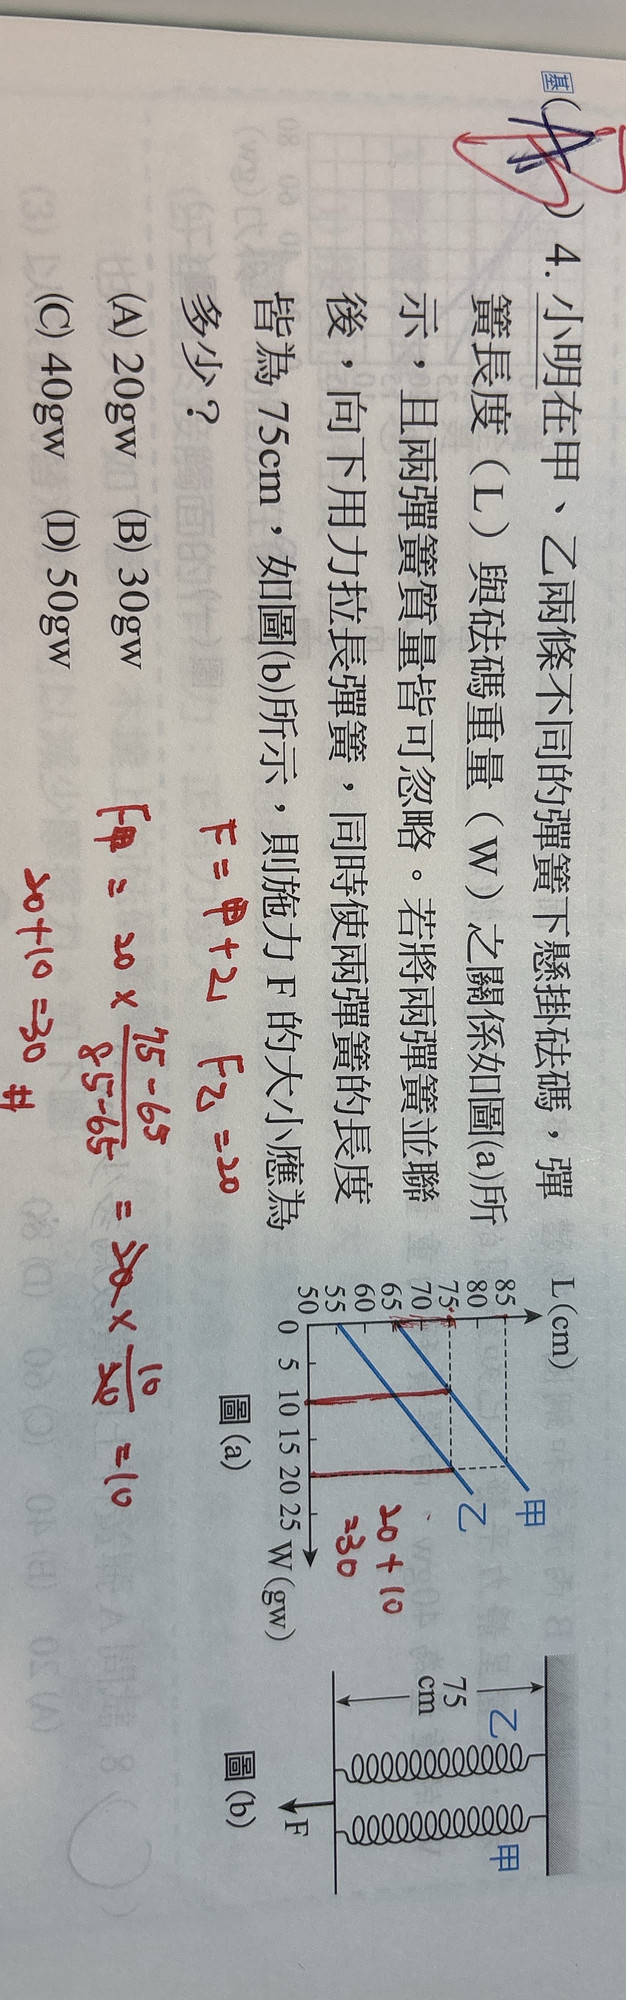 基( )4. 小明在甲、乙兩條不同的彈簧下懸掛砝碼，彈
簧長度（L）與砝碼重量（W）之關係如圖(a)所
示，且兩彈簧質量皆可忽略。若將兩彈簧並聯
後，向下用力拉長彈簧，同時使兩彈簧的長度
皆為 75cm，如圖(b)所示，則施力 F 的大小應為
多少？
(A) 20gw (B) 30gw
(C) 40gw (D) 50gw
F = 甲+乙 F乙 = 20
F甲 = 20 × 75-65/85-65 = 20 × 10/20 = 10
20+10=30 #
L (cm)
85
80
75
70
65
60
55
50
0 5 10 15 20 25 W (gw)
甲
乙
20+10
=30
圖(a)
乙
甲
75
cm
F
圖(b)